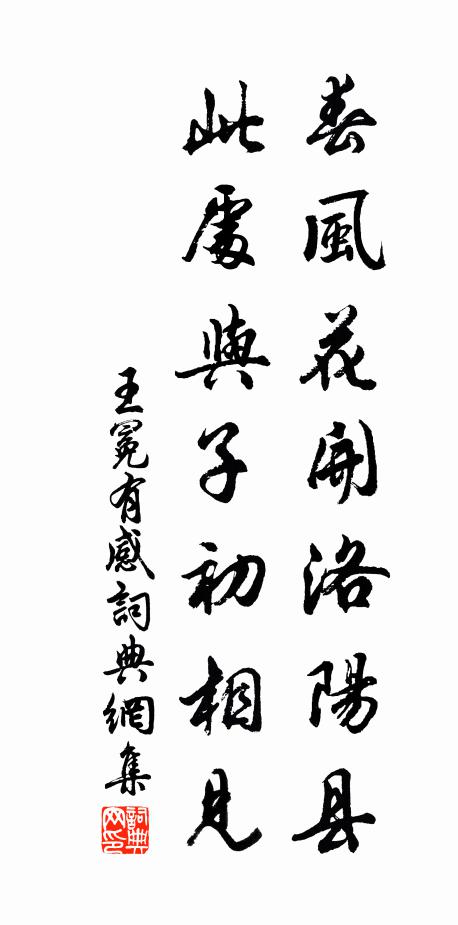 春風花開洛陽县
此處與子初相見
王冕有感詞典網集
詞典网印